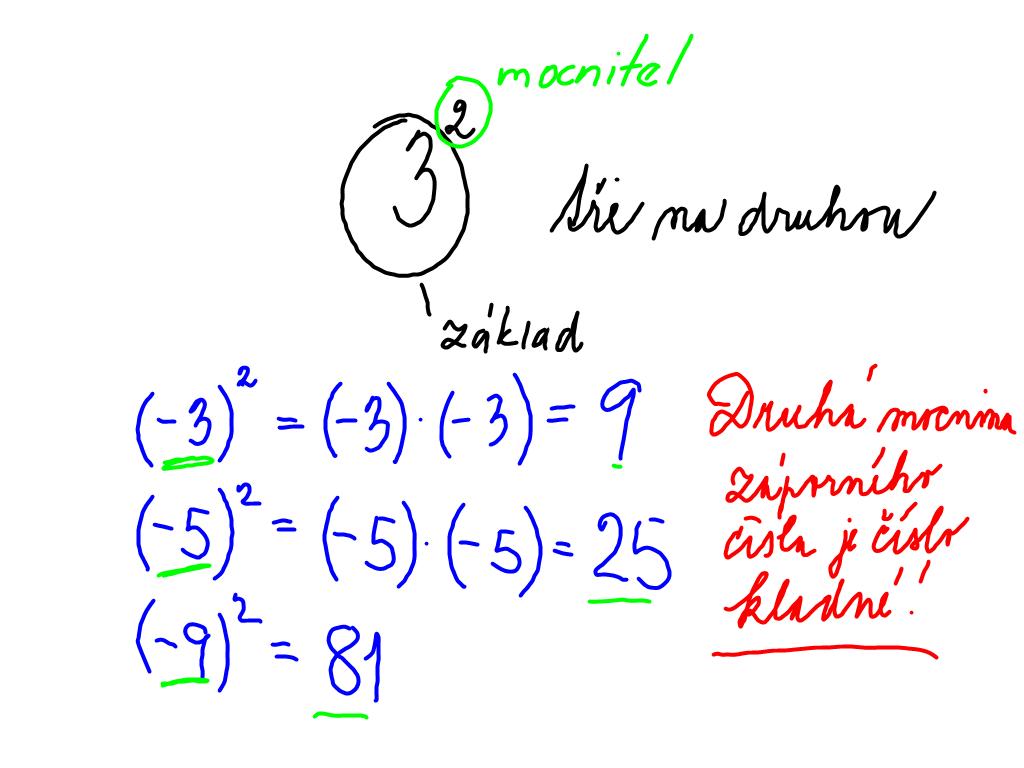 mocnitel
3²
tři na druhou
základ
(-3)² = (-3)·(-3) = 9
(-5)² = (-5)·(-5) = 25
(-9)² = 81
Druhá mocnina
záporného
čísla je číslo
kladné!